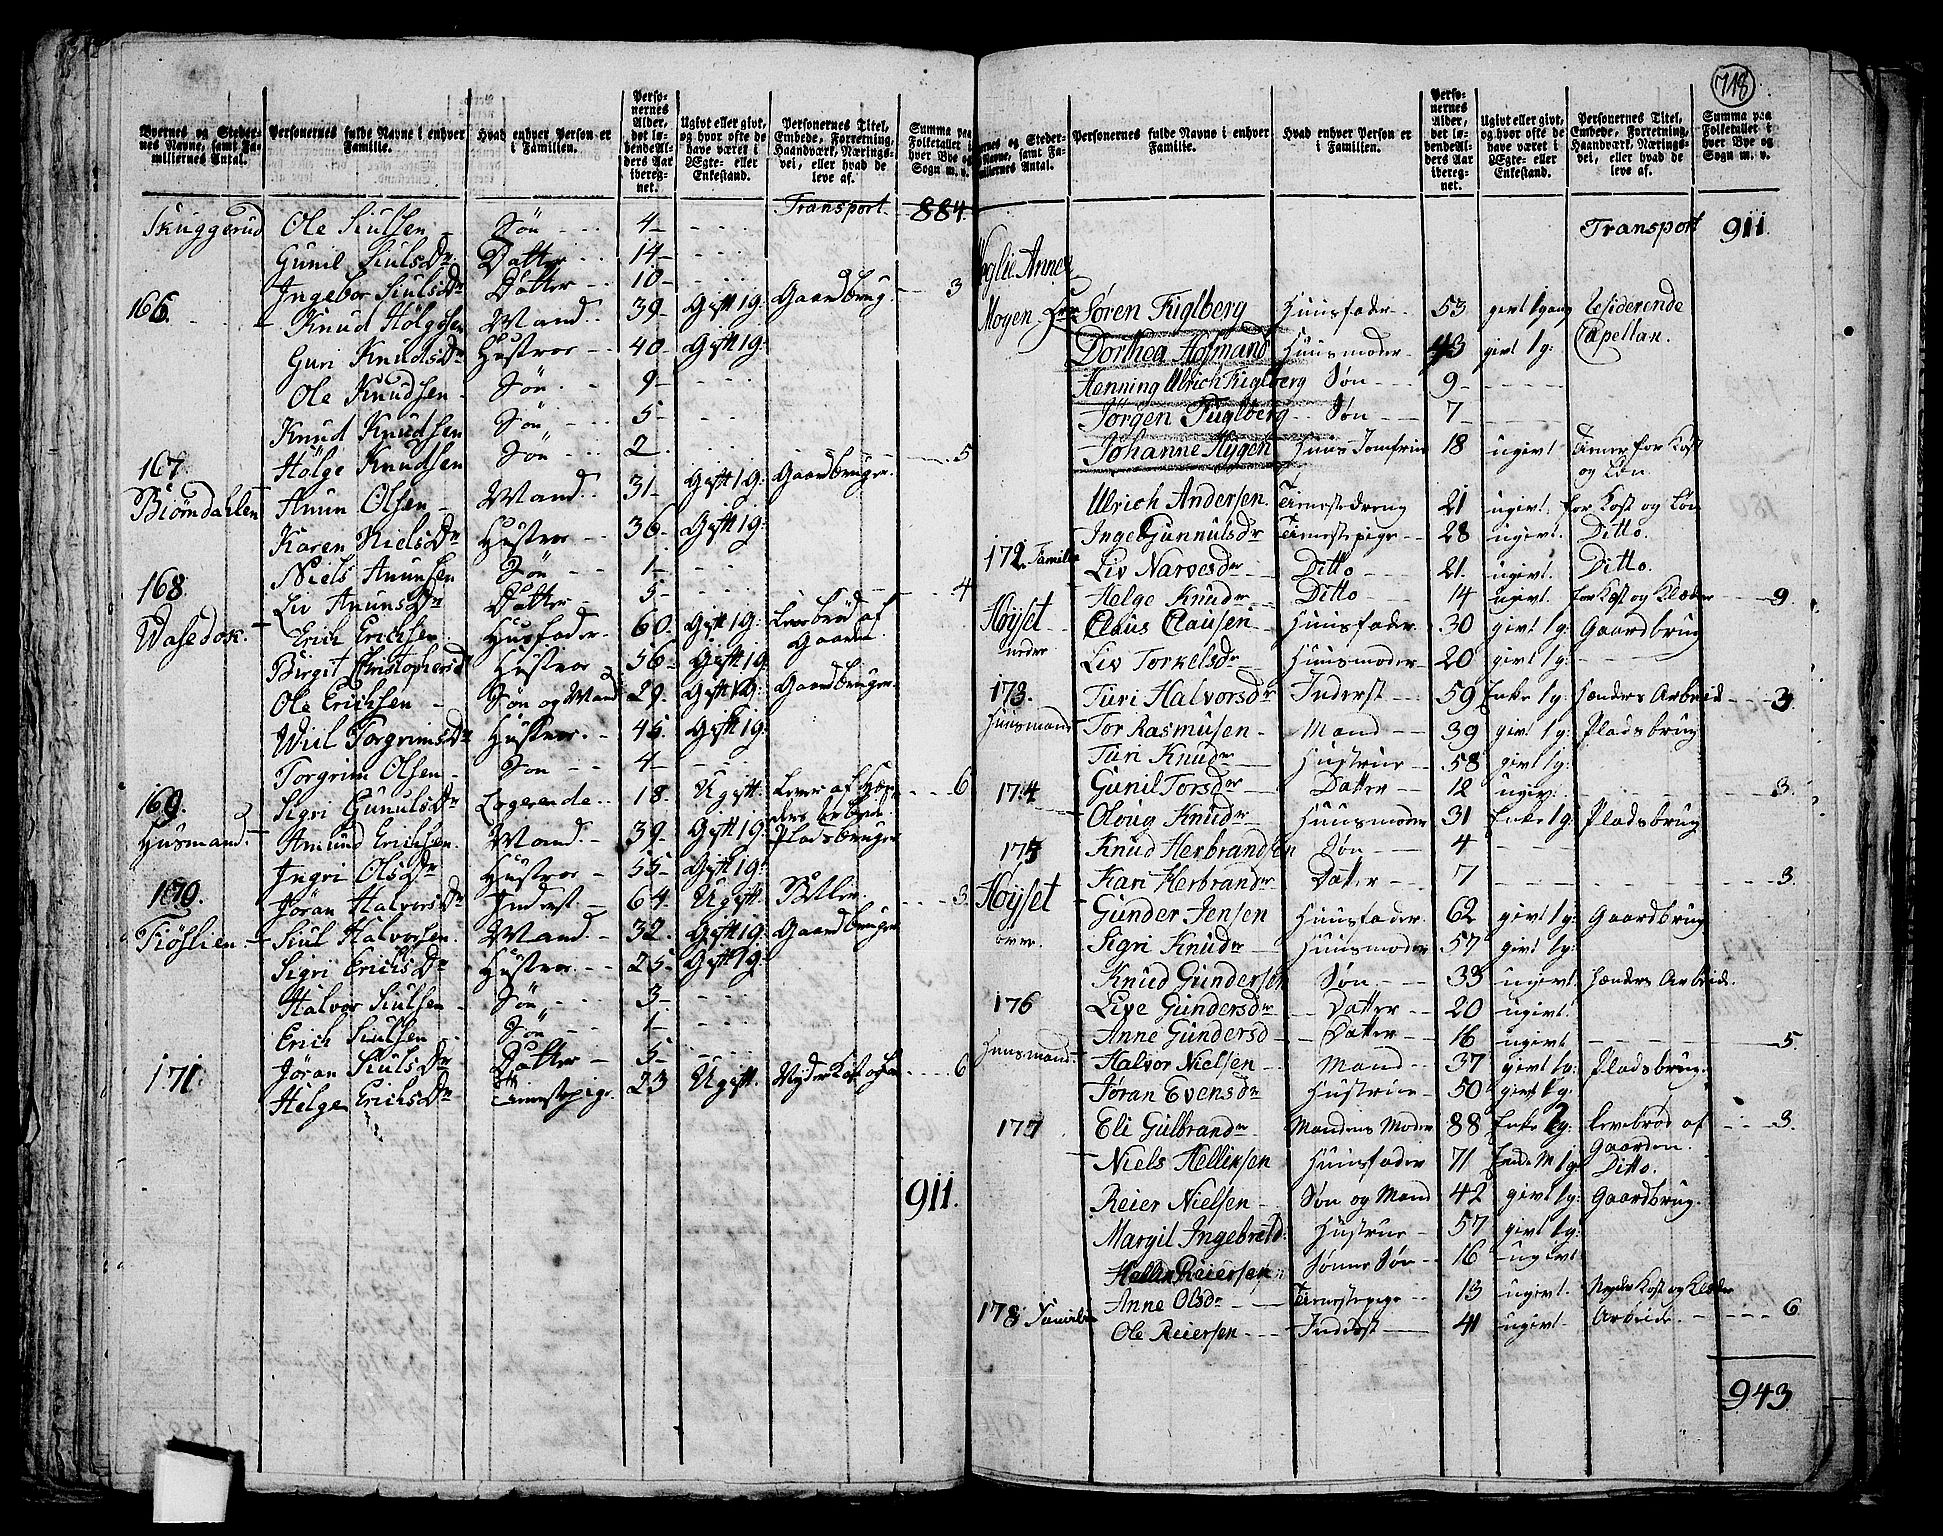 718
Byernes og Steder-nes Navne, samt Fa-miliernes Antal. Personernes fulde Navne i enhver Familie. Hvad enhver Person er i Familien. Perso-nernes Alder, det lø-bende Al-ders Aar ibereg-net. Ugivt eller givt, og hvor ofte de have været i Ægte- eller Enkestand. Personernes Titel, Embede, Forretning, Haandværk, Nærings-vei, eller hvad de leve af. Summa paa Folketallet i hver Bye og Sogn m. v.
Transport 884
Skuggerud Ole Siulsen Søn 4
Gunil Siulsdr Datter 14
Ingebor Siulsdr Datter 10 3
166. Knud Holgesen Mand 39 Gift 1g: Gaardbrug
Guri Knudsdr Hustroe 40 Gift 1g:
Ole Knudsen Søn 9
Knud Knudsen Søn 5
Holge Knudsen Søn 2 5
167
Biørndahlen Anun Olsen Mand 31 Gift 1g: Gaardbruger
Karen Nielsdr Hustroe 36 Gift 1g:
Niels Anunsen Søn 1
Liv Anunsdr Datter 5 4
168
Erich Erichsen Husfader 60 Gift 1g: Levebrød af Gaarden
Birgit Christophersdr Hustroe 56 Gift 1g:
Ole Erichsen Søn og Mand 29 Gift 1g: Gaardbruger
Torgrimsdr Hustroe 45 Gift 1g:
Torgrim Olsen Søn 4
Sigri Gunulsdr Logerende 18 Ugift Lever af Hæn-ders Arbeid 6
169.
Husmand Amund Erichsen Mand 39 Gift 1g: Pladsbruger
Ingri Olsdr Hustroe 55 Gift 1g:
Jøran Halvorsdr Inderst 64 Ugift 3
170.
Siul Halvorsen Mand 32 Gift 1g: Gaardbruger
Sigri Erichsdr Hustroe 25 Gift 1g:
Halvor Siulsen Søn 3
Erich Siulsen Søn 1
Jøran Siulsdr Datter 5
171. Helge Erichsdr Tienestepige 23 Ugift Nyder Kost og Løn 6
911.
Byernes og Steder-nes Navne, samt Fa-miliernes Antal. Personernes fulde Navne i enhver Familie. Hvad enhver Person er i Familien. Perso-nernes Alder, det lø-bende Al-ders Aar ibereg-net. Ugivt eller givt, og hvor ofte de have været i Ægte- eller Enkestand. Personernes Titel, Embede, Forretning, Haandværk, Nærings-vei, eller hvad de leve af. Summa paa Folketallet i hver Bye og Sogn m. v.
Transport 911.
Moglie Annex
Mogen Hr. Søren Fuglberg Huusfader 53 givt 1 gang Residerende Capellan.
Dorthea Hofmand Huusmoder 43 givt 1g:
Henning Ulrich Fuglberg Søn 9
Jørgen Fuglberg Søn 7
Johanne Hygen Huus Jomfrue 18 ugivt Tiener for Kost og Løn
Ulrich Andersen Tienestedreng 21 ugivt for Kost og Løn
Inge Gunnulsdr Tienestepige 28 ugivt. Ditto.
172. Familie Liv Narvesdr Ditto 21 ugivt. Ditto.
Helge Knudr Ditto 14 ugivt for Kost og Klæder 9.
Høyset nedre Claus Clausen Huusfader 30 givt 1g: Gaardbrug
Liv Torkelsdr Huusmoder 20 givt 1g:
173. Turi Halvorsdr Inderst 59 Enke 1g: Hænders Arbeid 3
Huusmand Tor Rasmusen Mand 39 givt 1g: Pladsbrug
Turi Knudr Hustrue 58 givt 1g:
174 Gunil Torsdr Datter 12 ugivt 3.
Oloug Knudr Huusmoder 31 Enke 1g: Pladsbrug
175 Knud Herbrandsen Søn 4
Kari Herbrandr Datter 7 3.
Høyset øvre. Gunder Jensen Huusfader 62 givt 1g: Gaardbrug
Sigri Knudr Huusmoder 57 givt 1g:
Knud Gundersen Søn 33 ugivt. Hænders Arbeid.
176 Live Gundersdr Datter 20 ugivt
Anne Gundersd Datter 16 ugivt 5.
Huusmand Halvor Nielsen Mand 37 givt 1g: Pladsbrug.
Jøran Evensdr Hustrue 50 givt 1g:
177 Eli Gulbrandr Mandens Moder 88 Enke 2g: Levebrød af Gaarden. 3.
Niels Hellinsen Huusfader 71 Enkem 1g Ditto.
Reier Nielsen Søn og Mand 42 givt 1g: Gaardbrug.
Margit Ingebretd: Hustrue 57 givt 1g:
Hellin Reiersen Sønne Søn 16 ugivt
Anne Olsdr Tienestepige 13 ugivt. Nyder Kost og Klæder
178 Familie Ole Reiersen Inderst 41 ugivt Arbeide. 6
943